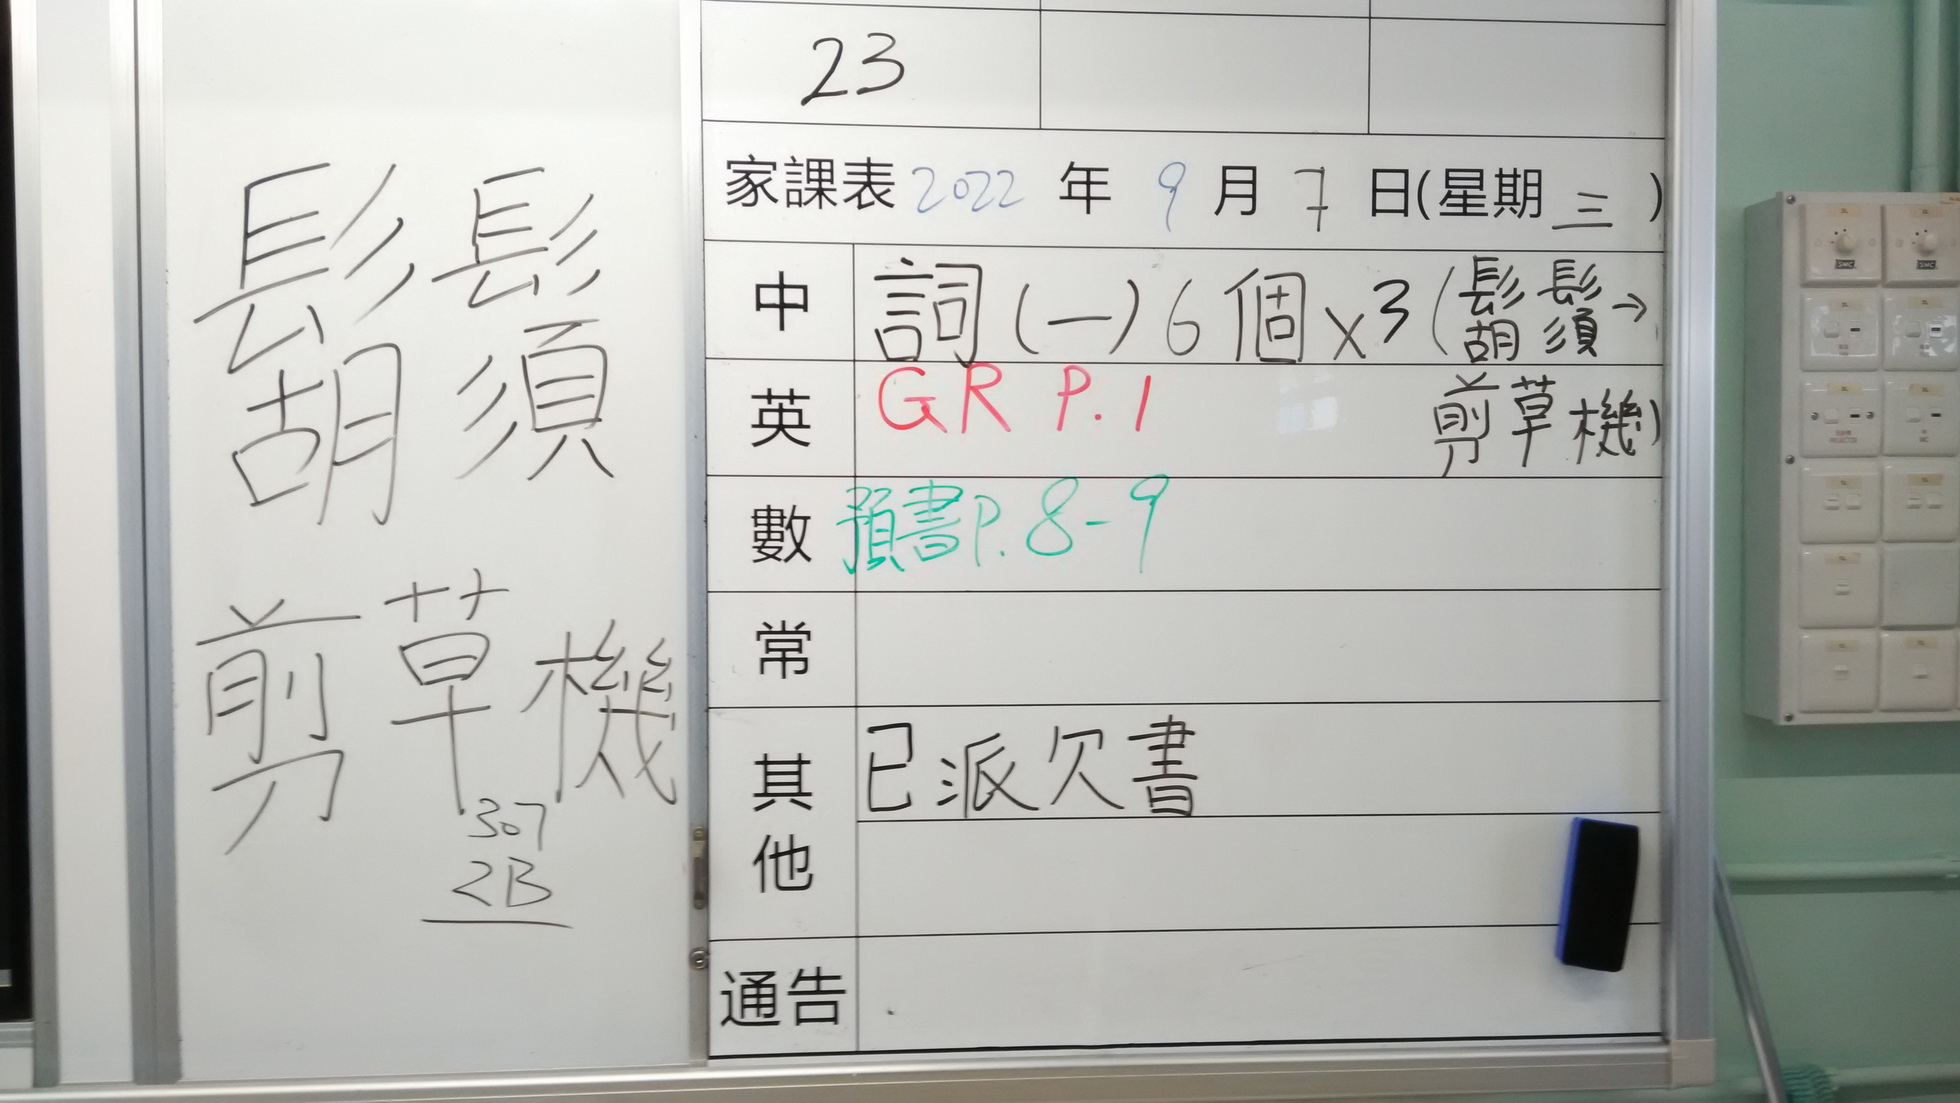 鬍鬚
剪草機
307
2B
23
家課表 2022 年 9 月 7 日(星期三)
中 詞(一)6個x3(鬍鬚→
英 GR P.1 剪草機)
數 預書P.8-9
常
其他 已派欠書
通告